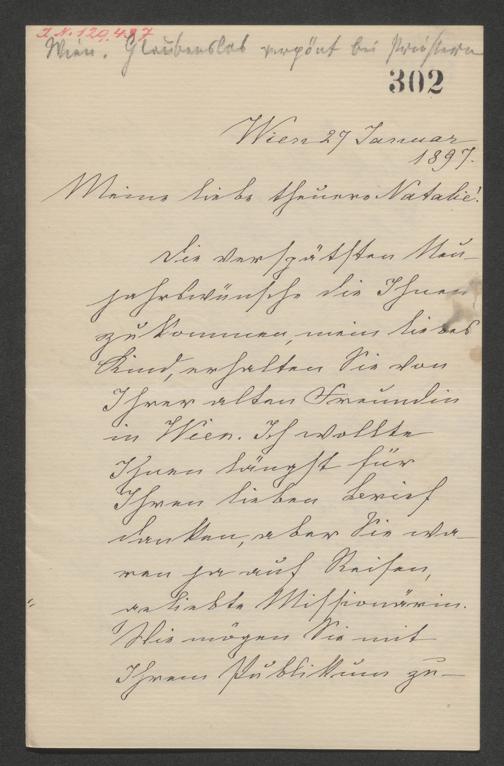 I.N. 129.487
Wien. Glaubenslos verpönt bei Priestern
302
Wien 27 Januar
1897.
Meine liebe theuere Natalie!
Die verspätsten Neu-
jahrswünsche die Ihnen
zukommen, mein liebes
Kind, erhalten Sie von
Ihrer alten Freundin
in Wien. Ich wollte
Ihnen längst für
Ihren lieben Brief
danken, aber Sie wa-
ren ja auf Reisen,
geliebte Missionärin.
Wie mögen Sie mit
Ihrem Publikum zu-